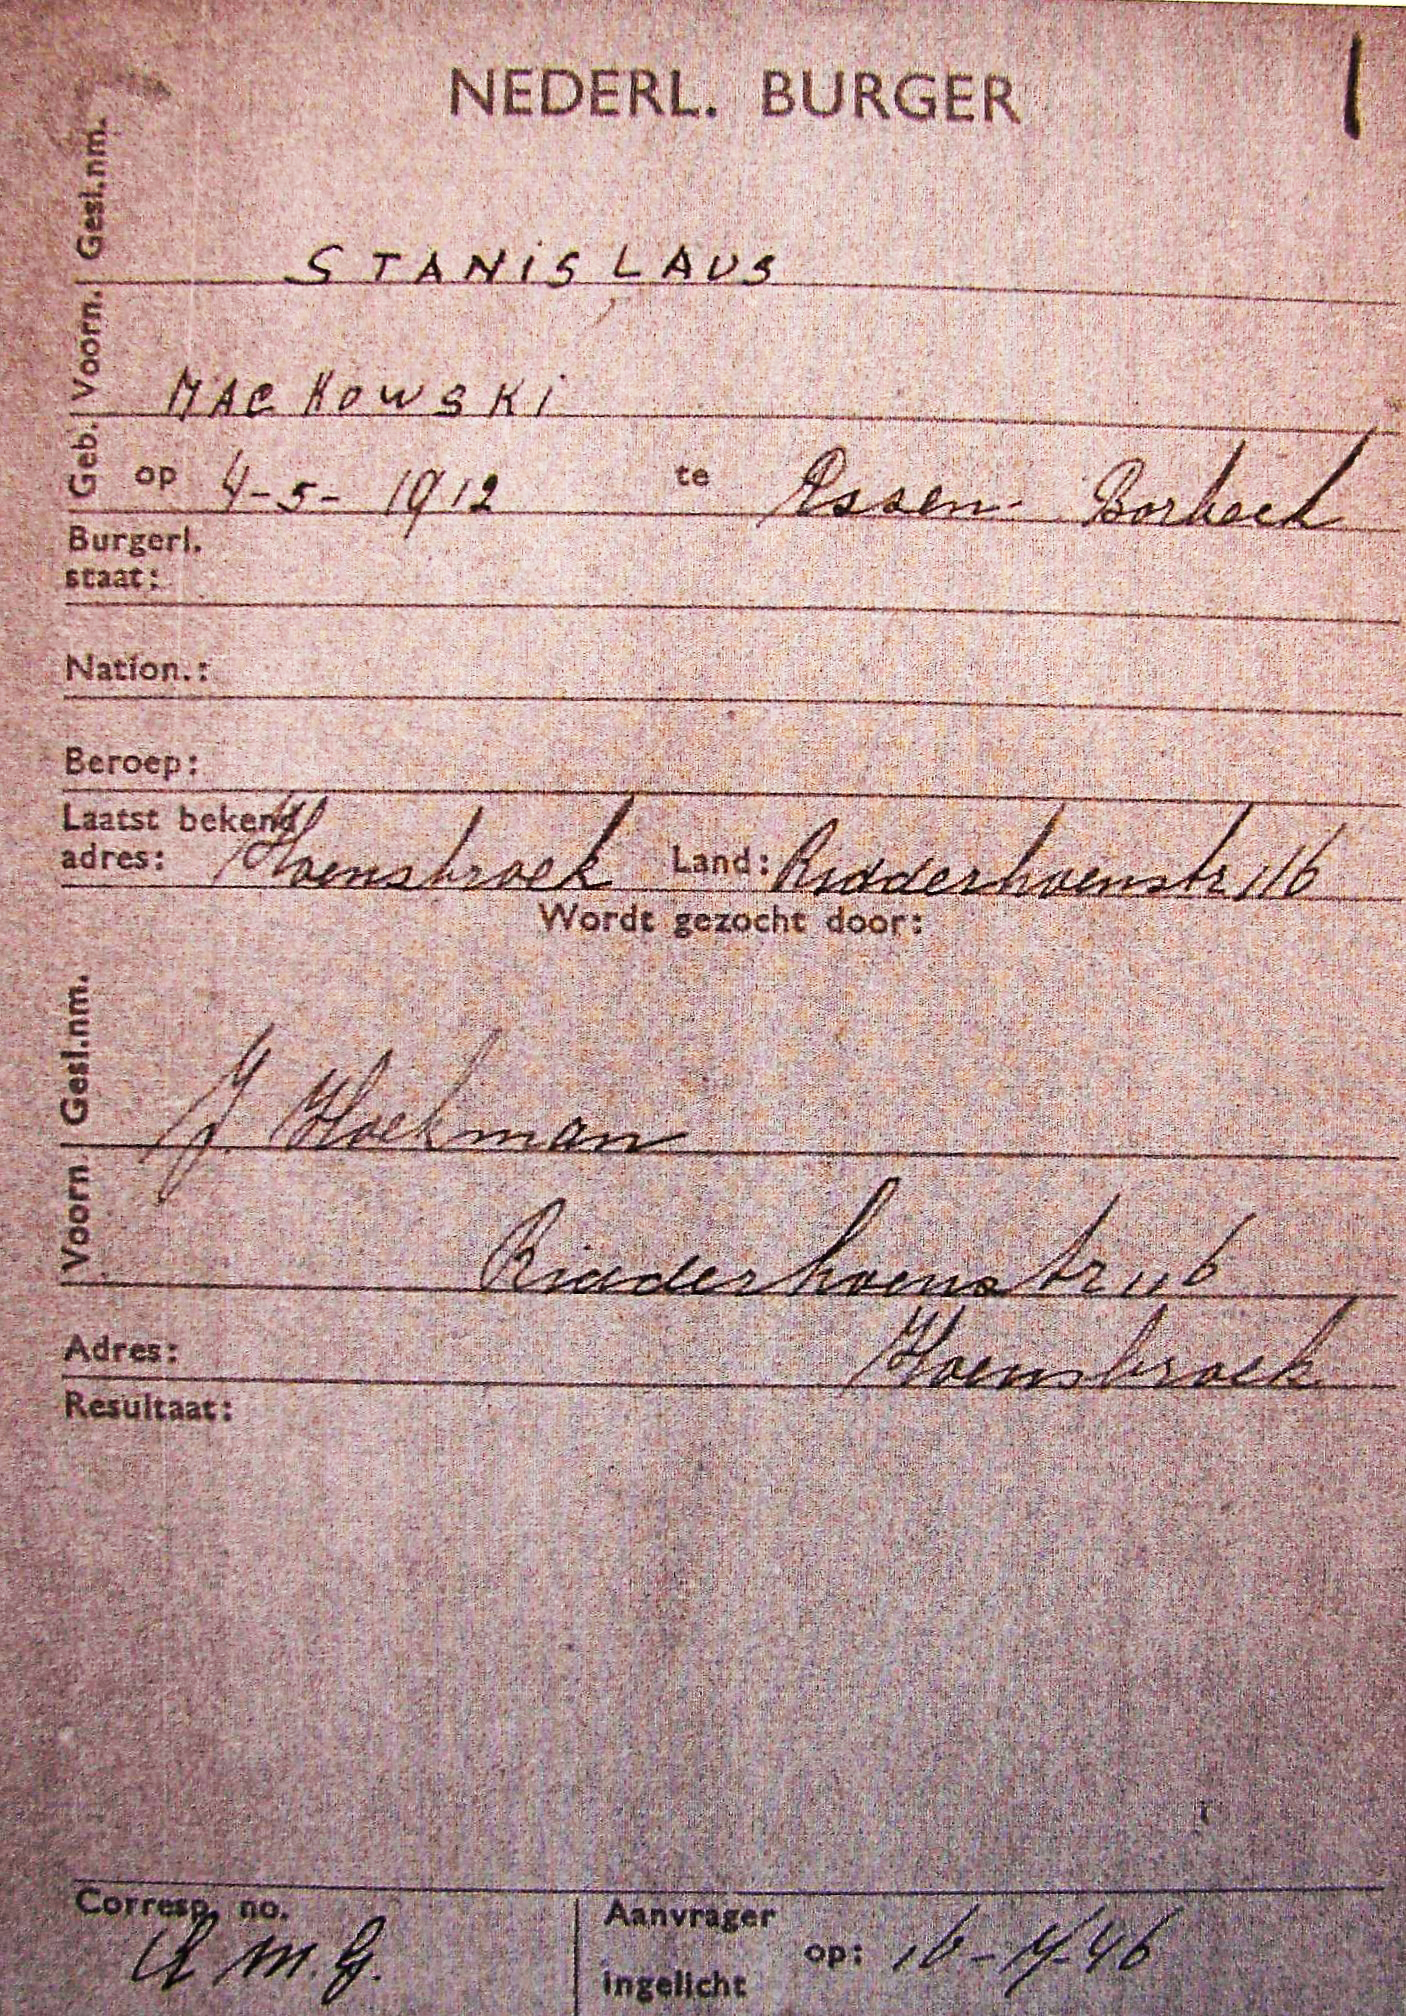 NEDERL. BURGER
Gesl.nm.
STANISLAUS
Voorn.
MACKOWSKI
Geb. op 4-5-1912 te Essen-Borbeck
Burgerl.
staat:
Nation.:
Beroep:
Laatst bekend
adres: Hoensbroek Land: Ridderhoenstr 116
Wordt gezocht door:
Gesl.nm.
J. Hoekman
Voorn
Ridderhoenstr 116
Hoensbroek
Adres:
Resultaat:
Corresp. no.
M.G.
Aanvrager
op:
ingelicht